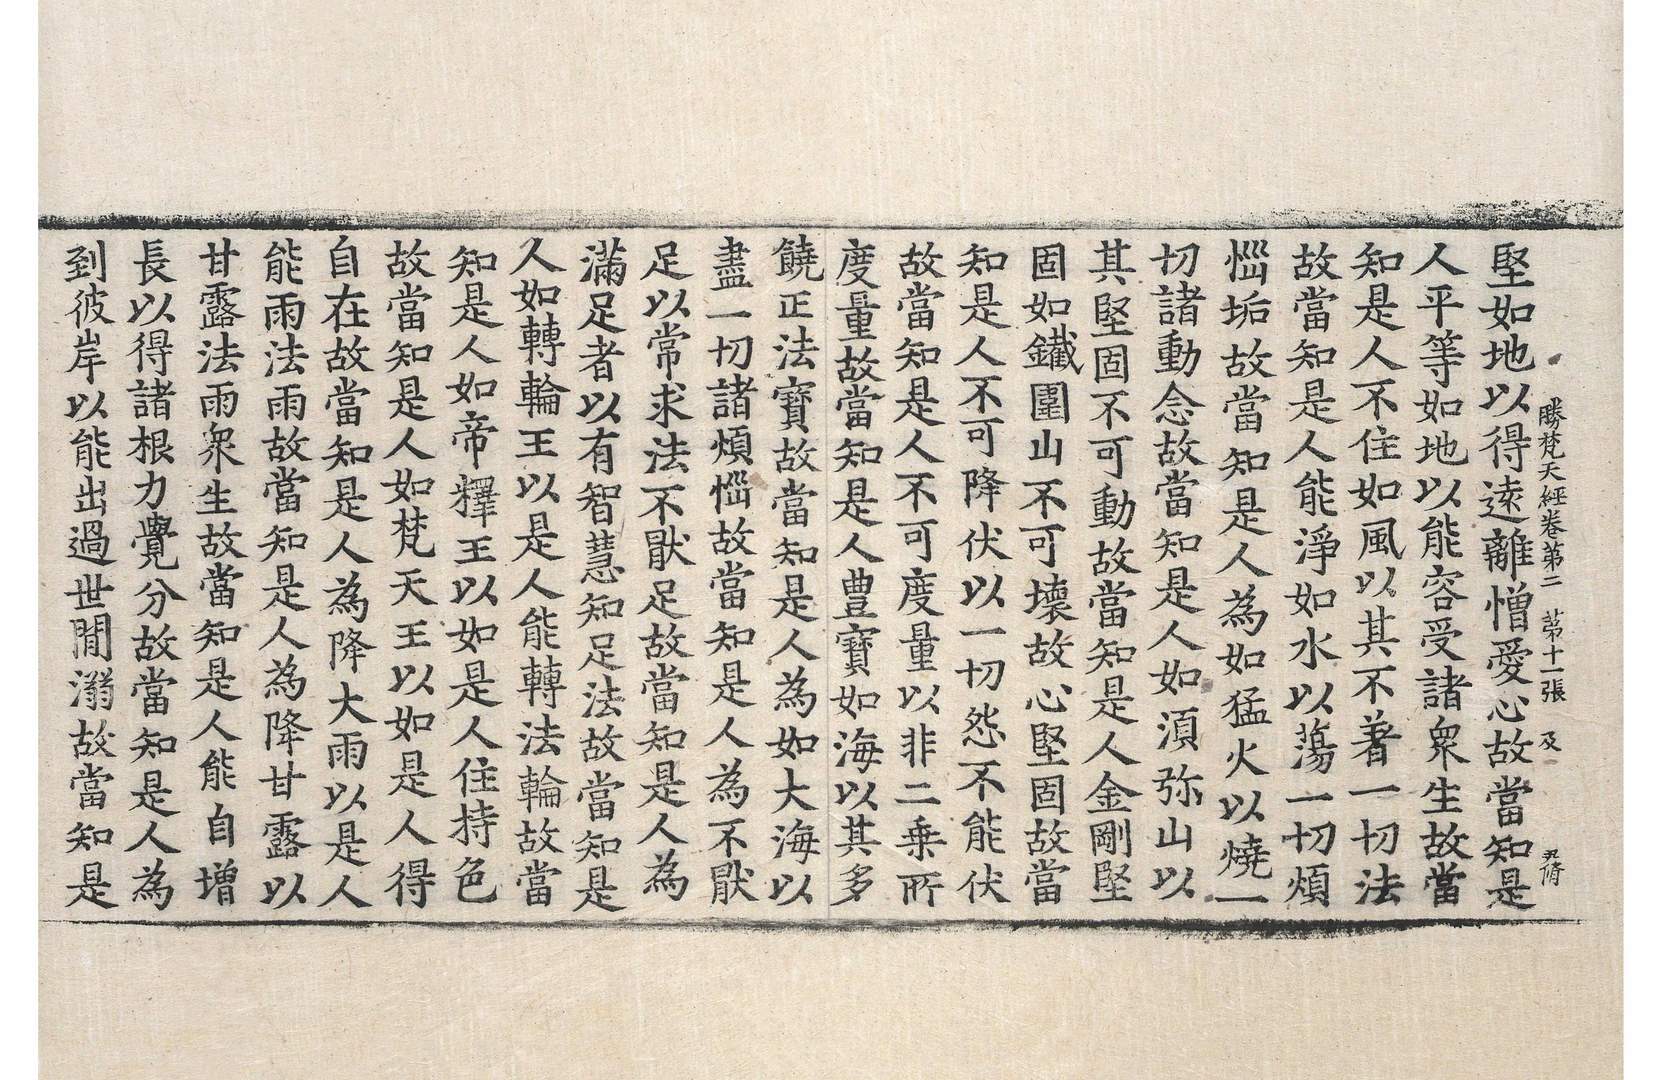 勝梵天經卷第二　第十一張　及　尹脩
堅如地以得遠離憎愛心故當知是
人平等如地以能容受諸衆生故當
知是人不住如風以其不著一切法
故當知是人能淨如水以蕩一切煩
惱垢故當知是人為如猛火以燒一
切諸動念故當知是人如湏弥山以
其堅固不可動故當知是人金剛堅
固如鐵圍山不可壞故心堅固故當
知是人不可降伏以一切怨不能伏
故當知是人不可度量以非二乗所
度量故當知是人豊寶如海以其多
饒正法寶故當知是人為如大海以
盡一切諸煩惱故當知是人為不猒
足以常求法不猒足故當知是人為
滿足者以有智慧知足法故當知是
人如轉輪王以是人能轉法輪故當
知是人如帝釋王以如是人住持色
故當知是人如梵天王以如是人得
自在故當知是人為降大雨以是人
能雨法雨故當知是人為降甘露以
甘露法雨衆生故當知是人能自增
長以得諸根力覺分故當知是人為
到彼岸以能出過世間溺故當知是